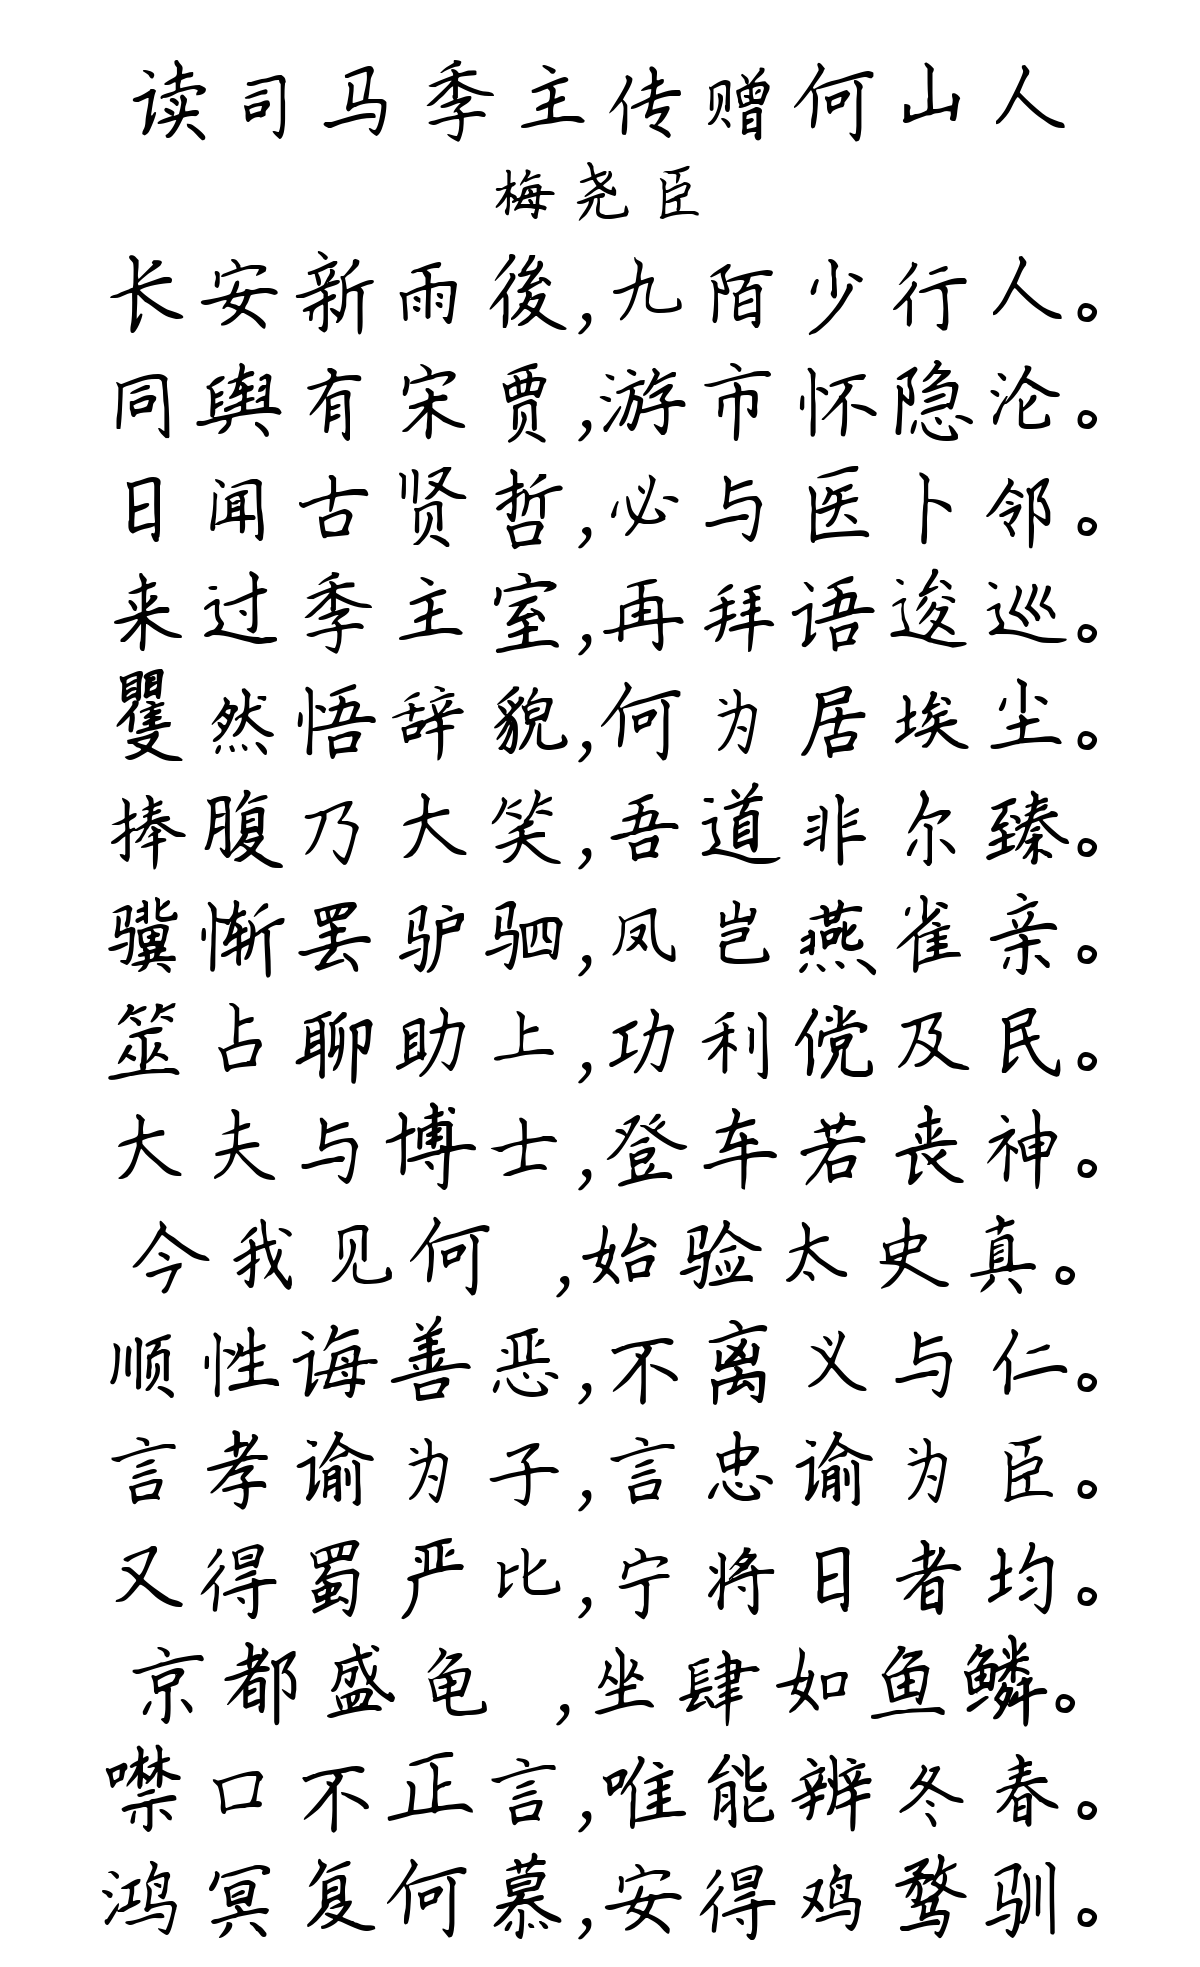 读司马季主传赠何山人
梅尧臣
长安新雨後,九陌少行人。
同舆有宋贾,游市怀隐沦。
日闻古贤哲,必与医卜邻。
来过季主室,再拜语逡巡。
矍然悟辞貌,何为居埃尘。
捧腹乃大笑,吾道非尔臻。
骥惭罢驴驷,凤岂燕雀亲。
筮占聊助上,功利傥及民。
大夫与博士,登车若丧神。
今我见何 ,始验太史真。
顺性诲善恶,不离义与仁。
言孝谕为子,言忠谕为臣。
又得蜀严比,宁将日者均。
京都盛龟 ,坐肆如鱼鳞。
噤口不正言,唯能辨冬春。
鸿冥复何慕,安得鸡鹜驯。